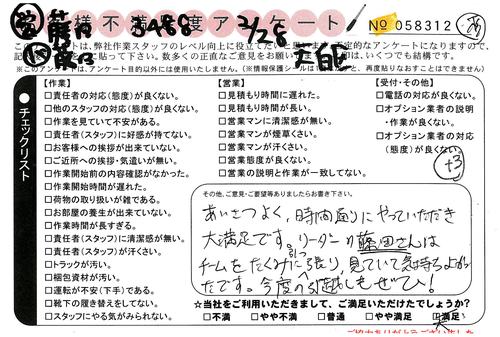 お客様不満足度アンケート
3488
2/28
№ 058312
このアンケートは、弊社作業スタッフのレベル向上に役立てたいと思います。不定期なアンケートになりますので、
です。数多くの正直なご意見をお願い
いくつでも結構です。
(※このアンケートは、アンケート目的以外には使用いたしません。(※情報保護シール
と、再度貼りなおすことはできません)
チェックリスト
【作業】
□責任者の対応(態度)が良くない。
□他のスタッフの対応(態度)が良くない。
□作業を見ていて不安がある。
□責任者(スタッフ)に好感が持てない。
□お客様への挨拶が出来ていない。
□ご近所への挨拶・気遣いが無い。
□作業開始前の内容確認がなかった。
□作業開始時間が遅れた。
□荷物の取り扱いが雑である。
□お部屋の養生が出来ていない。
□作業時間が長すぎる。
□責任者(スタッフ)に清潔感が無い。
□責任者(スタッフ)が汗くさい。
□トラックが汚い。
□梱包資材が汚い。
□運転が不安(下手)である。
□靴下の履き替えをしてない。
□スタッフにやる気がみられない。
【営業】
□見積もり時間に遅れた。
□見積もり時間が長い。
□営業マンに清潔感が無い。
□営業マンが煙草くさい。
□営業マンが汗くさい。
□営業態度が良くない。
□営業の説明と作業が一致してない。
【受付・その他】
□電話の対応が良くない。
□オプション業者の説明
・作業が良くない。
□オプション業者の対応
(態度)が良くない。
+3
その他、ご意見・ご要望等ありましたらお書き下さい。
あいさつよく、時間通りにやっていただき
大満足です。リーダーの藤田さんは
チームをたくみに引っ張り、見ていて気持ちよかっ
たです。今度の引越しもぜひ!
☆当社をご利用いただきまして、ご満足いただけたでしょうか?
□不満 □やや不満 □普通 □やや満足 □満足
大
ご協力ありがとうございました